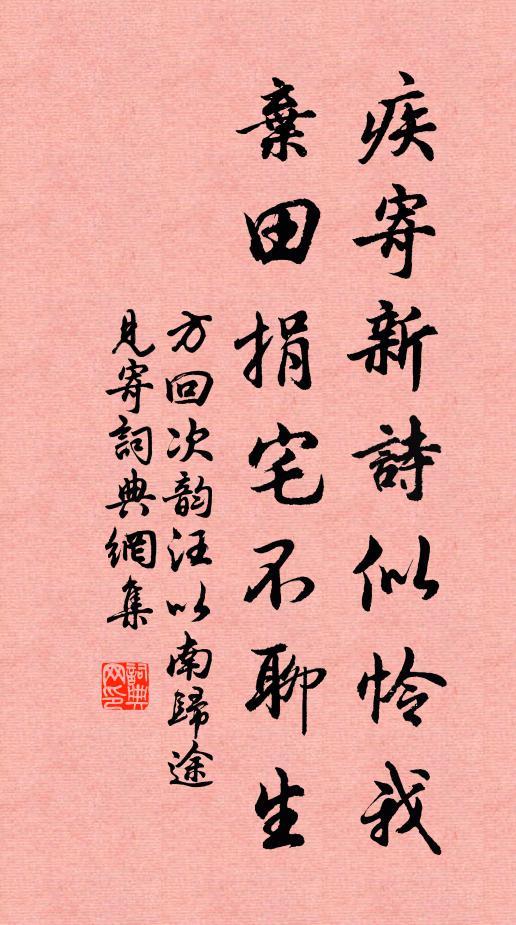 疾寄新詩似怜我
棄田捐宅不聊生
方回次韵汪以南歸途
見寄詞典網集
詞典
网印